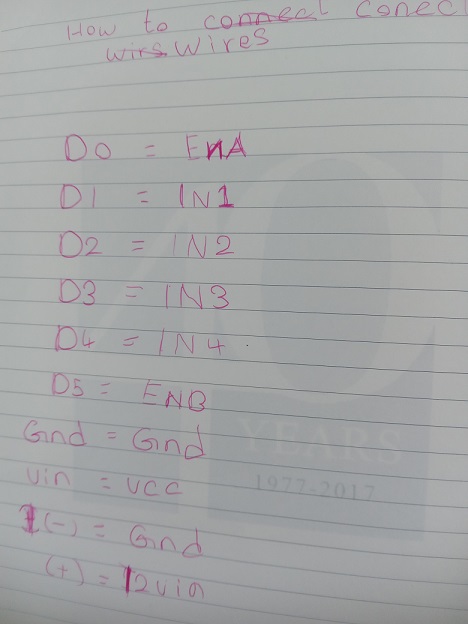 How to conect
wires
D0 = ENA
D1 = IN1
D2 = IN2
D3 = IN3
D4 = IN4
D5 = ENB
Gnd = Gnd
Vin = VCC
(-) = Gnd
(+) = 12Vin
YEARS
1977-2017